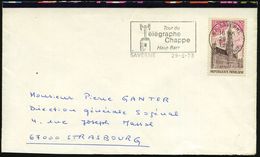 Tour du
Télégraphe
Chappe
Haut Barr
SAVERNE 29-5-73
REPUBLIQUE FRANÇAISE
Monsieur Pierre GANTER
Direction générale Sogenal
4, rue Joseph Massol
67000 STRASBOURG